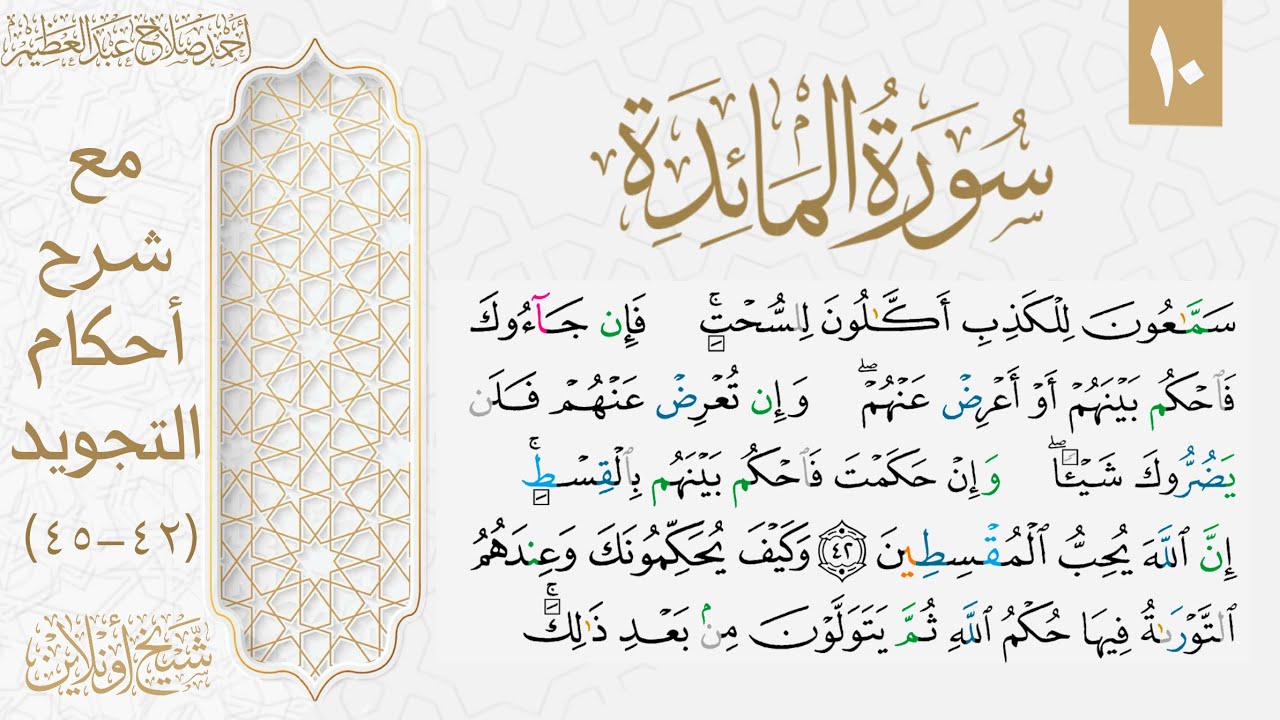 ١٠
أحمد صلاح عبد العظيم
سُورَةُ المَائِدَةِ
مع
شرح
أحكام
التجويد
(٤٢-٤٥)
شيخ أونلاين
سَمَّٰعُونَ لِلۡكَذِبِ أَكَّٰلُونَ لِلسُّحۡتِۚ فَإِن جَآءُوكَ
فَٱحۡكُم بَيۡنَهُمۡ أَوۡ أَعۡرِضۡ عَنۡهُمۡۖ وَإِن تُعۡرِضۡ عَنۡهُمۡ فَلَن
يَضُرُّوكَ شَيۡـٔٗاۖ وَإِنۡ حَكَمۡتَ فَٱحۡكُم بَيۡنَهُم بِٱلۡقِسۡطِۚ
إِنَّ ٱللَّهَ يُحِبُّ ٱلۡمُقۡسِطِينَ ٤٢ وَكَيۡفَ يُحَكِّمُونَكَ وَعِندَهُمُ
ٱلتَّوۡرَىٰةُ فِيهَا حُكۡمُ ٱللَّهِ ثُمَّ يَتَوَلَّوۡنَ مِنۢ بَعۡدِ ذَٰلِكَۚ